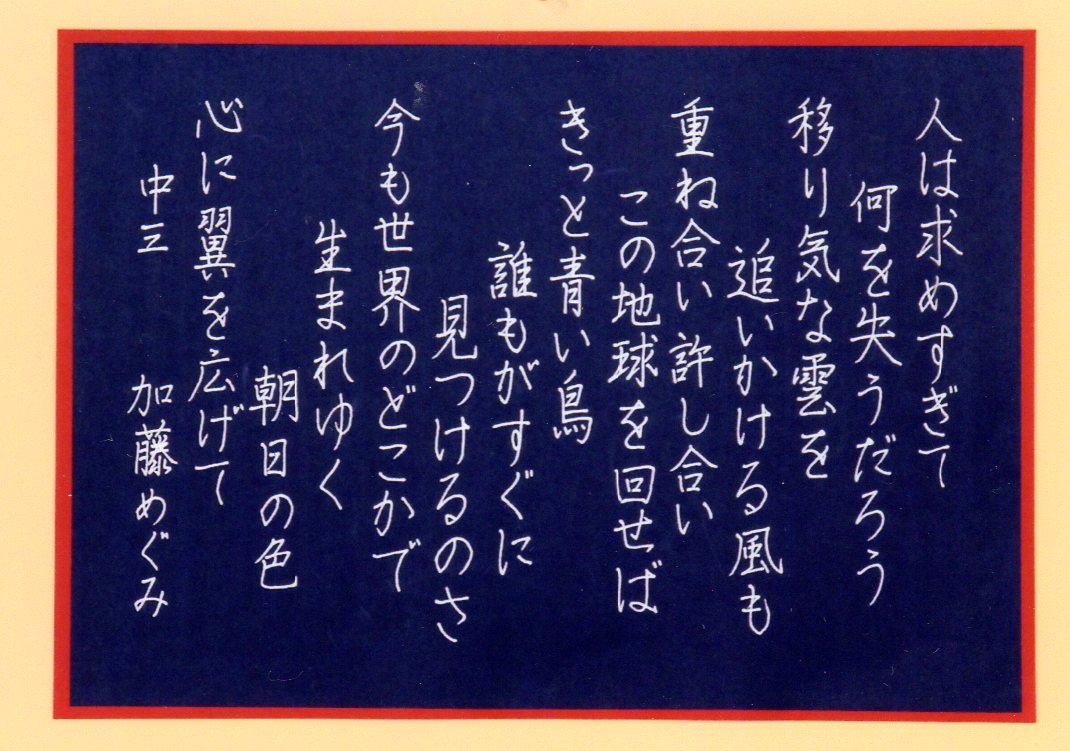 人は求めすぎて
何を失うだろう
移り気な雲を
追いかける風も
重ね合い許し合い
この地球を回せば
きっと青い鳥
誰もがすぐに
見つけるのさ
今も世界のどこかで
生まれゆく
朝日の色
心に翼を広げて
中三 加藤めぐみ